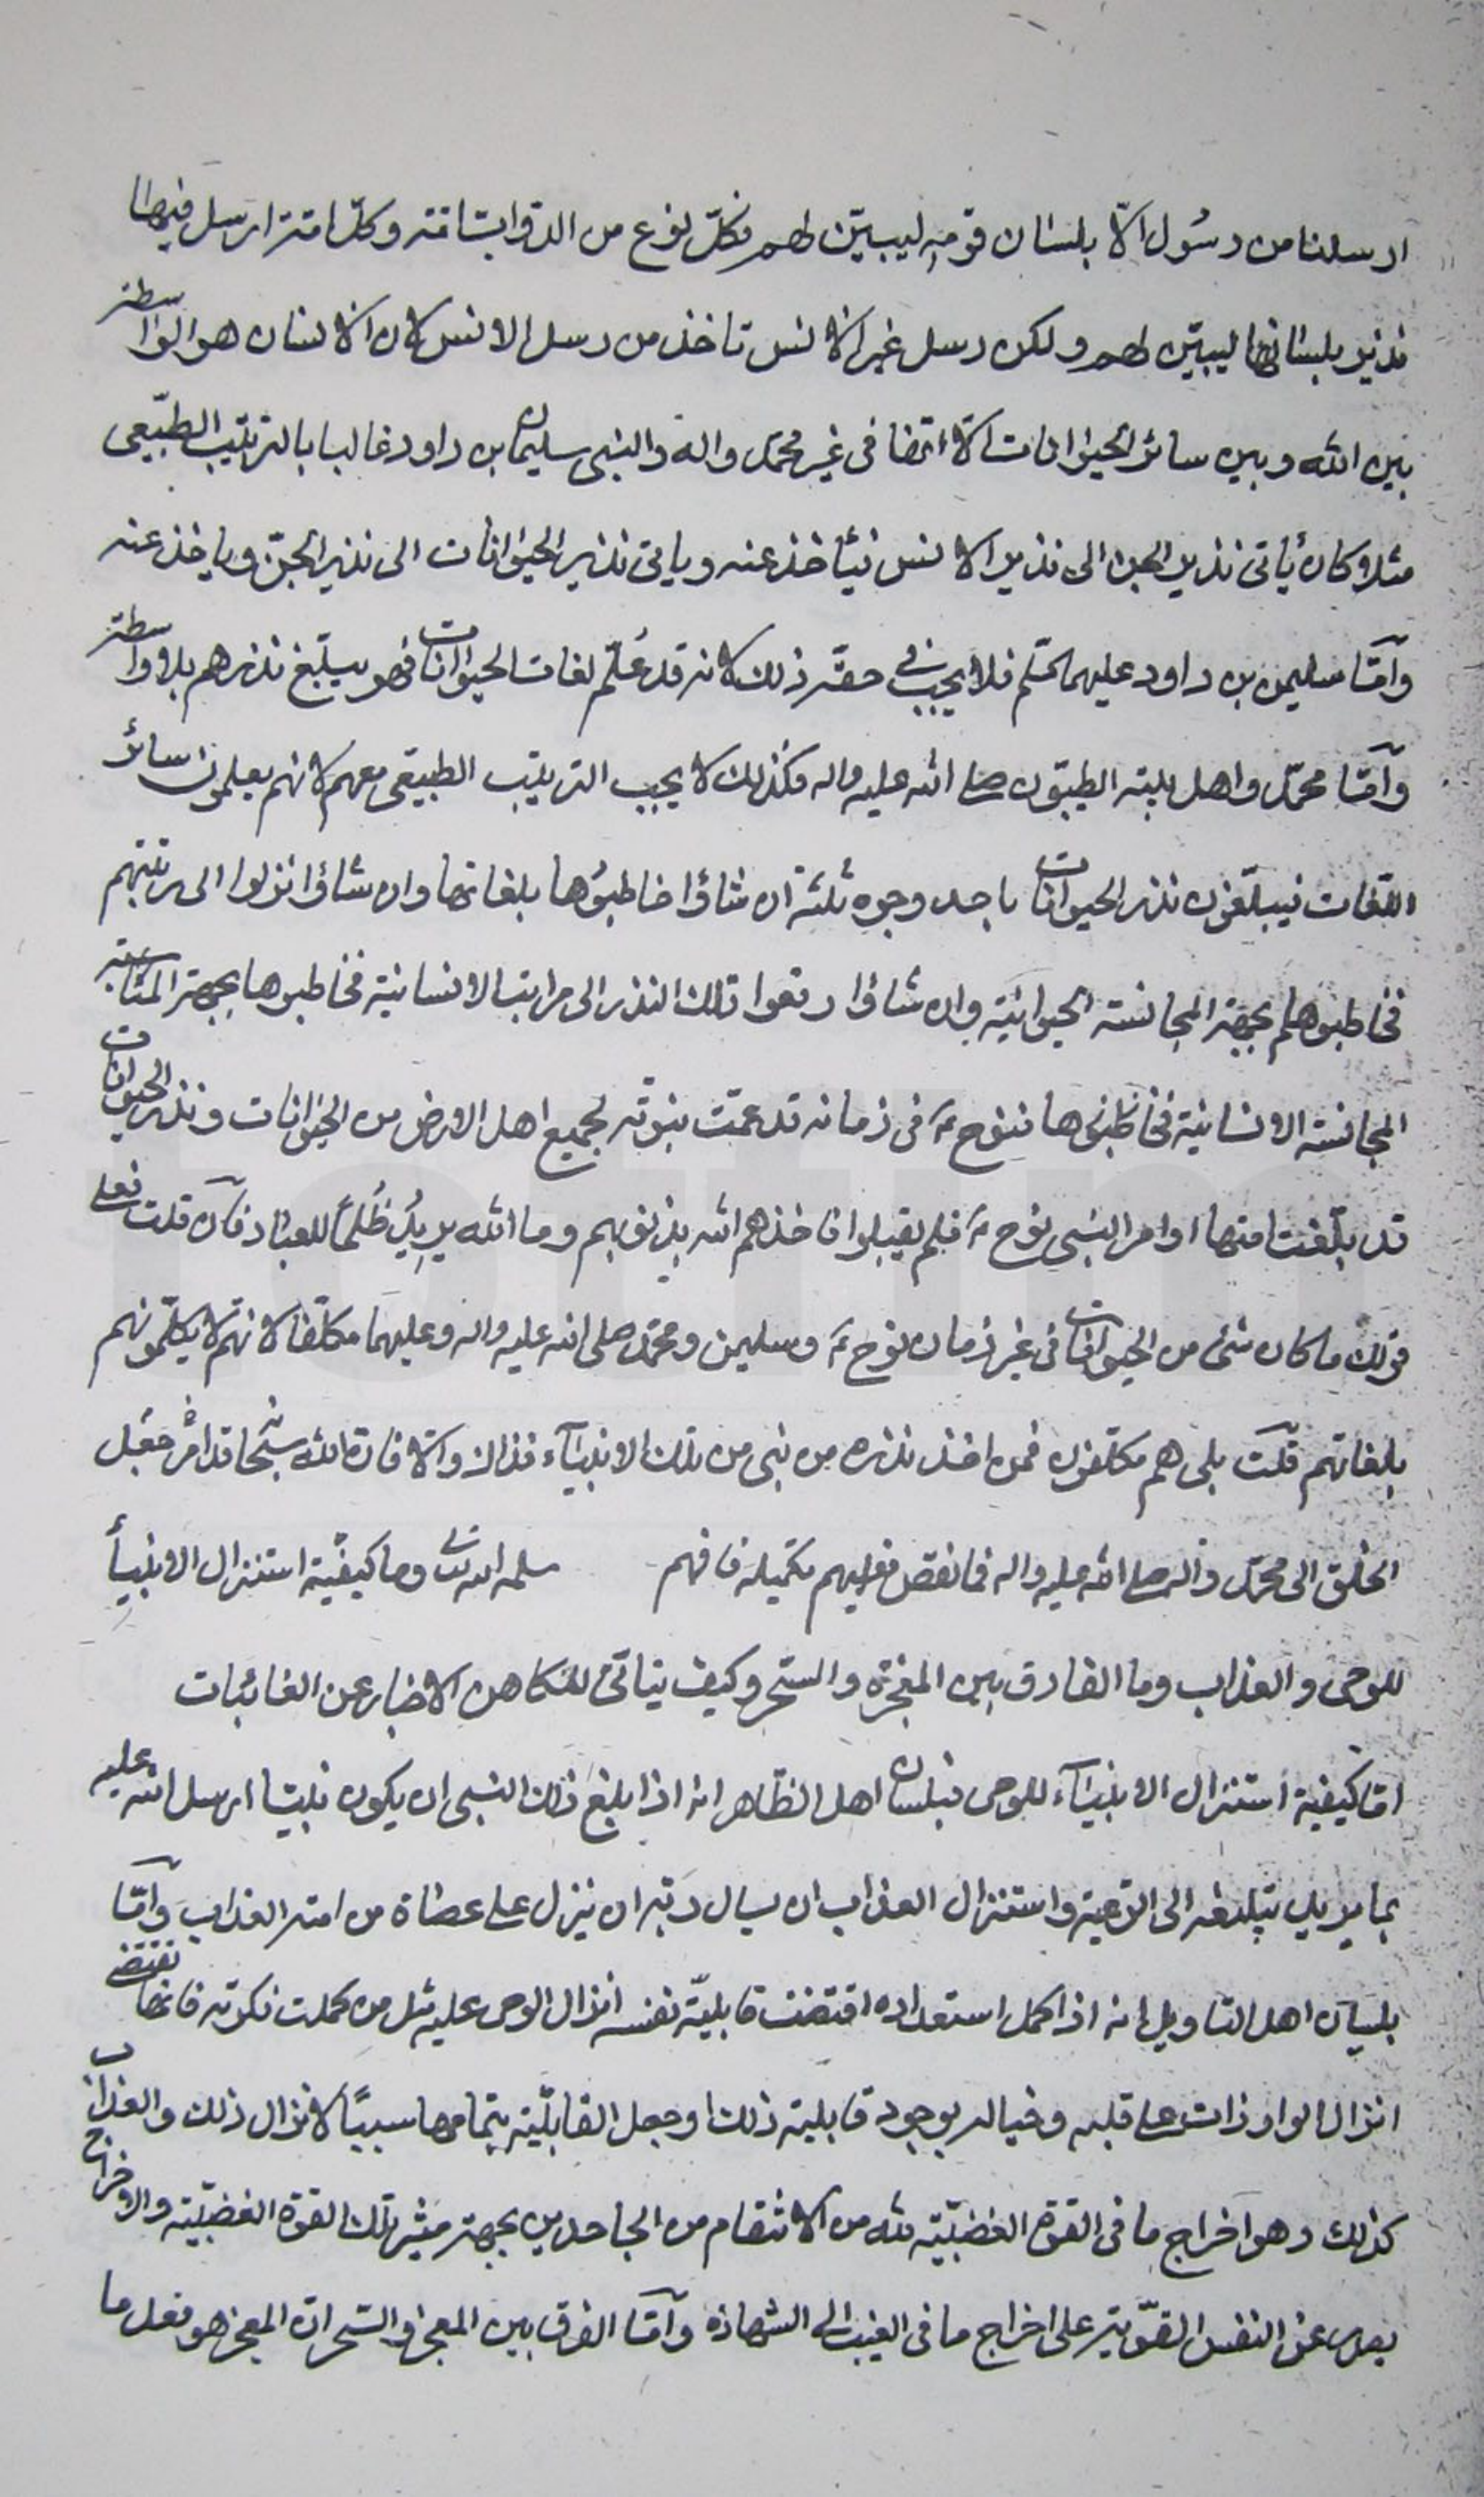 ارسلنا من رسُول الّا بلسٰان قومِهِ ليبيّن لهم فكلّ نوع من الدوابّ امّة وكلّ امّة ارسل فيهٰا
نذير بلسٰانهٰا ليبيّن لهم ولكن رسل غير الانس تاخذ من رسل الانس لان الانسان هو الواسطة
بين الله وبين سائر الحيوٰانات الّا انّها فى غير محمّد وآله والنبى سليمان بن داود غالبا بالترتيب الطّبيعى
مثلا وكان يأتى نذير الجن الى نذير الانس فيأخذ عنه وياتى نذير الحيوٰانات الى نذير الجنّ وياخذ عنه
وامّا سليمن بن داود عليهما السّلم فلا يجب فى حقّه ذلك لانه قد عُلّم لغات الحيوانات فهو يبلّغ نذرهم بلا واسطة
وامّا محمّد واهل بيته الطيبون صلى الله عليه واله فكذلك لا يجب الترتيب الطبيعى معهم لانهم يعلمون سائر
اللغات فيبلّغون نذر الحيوانات باحد وجوه ثلثة ان شاؤا خاطبوُها بلغاتها وان شاؤا نزلوا الى رتبتهم
فخاطبوهم بجهة المجانسة الحيوانيّة وان شاؤا رفعوا تلك النذر الى مراتب الانسانية فخاطبوها بجهة المناسبة
المجانسة الانسانية فخاطبوها فنوح ع فى زمانه قد عمّت نبوّته لجميع اهل الارض من الحيوٰانات ونذر الحيوانات
قد بلّغت امتها اوامر النبى نوح ع فلم يقبلوا فاخذهم الله بذنوبهم وما الله يريدُ ظُلماً للعبٰاد فان قلت فعلى
قولك ما كان شئ من الحيوانات فى غير زمان نوح ع وسليمن ومحمّد صلى الله عليه واله وعليهما مكلّفا لانهم لا يكلّمونهم
بلغاتهم قلت بلى هم مكلّفون فمن اخذ نذره من نبى من تلك الانبيٰآء فذاك والّا فان الله سبحانه قد امر جعل
الخلق الى محمّد وآله صلى الله عليه واله فما نقص فعليهم تكميله فافهم سلمه الله تعالى وما كيفيّة استنزال الانبيأ
للوحى والعذاب وما الفارق بين المعجزة والسّحر وكيف يتاتّى للكاهن الاخبار عن الغائبات
امّا كيفية استنزال الانبيٰآء للوحى فبلسان اهل الظّاهر انه اذا بلغ ذلك النبى ان يكون نبيّا ارسل الله عليه
بما يريد تبليغه الى الرّعيّة واستنزال العذاب ان يسال ربّه ان ينزل على عصٰاة من امته العذاب وامّا
بلسان اهل التاويل انه اذا كمل استعداده اقتضت قابليّة نفسه انزال الوحى عليه مثل من كملت فكرته فانها تقتضى
انزال الواردات على قلبه وخياله بوجود قابلية ذلك او جعل القابليّة بتمامها سبباً لانزال ذلك والعذاب
كذلك وهو اخراج ما فى القوة الغضبيّة لله من الانتقام من الجاحدين بجهة مثير تلك القوّة الغضبيّة والاخراج
يصدر عن النفس القويّة على اخراج ما فى الغيب الى الشهادة وامّا الفرق بين المعجز والسّحر انّ المعجز هو فعل ما